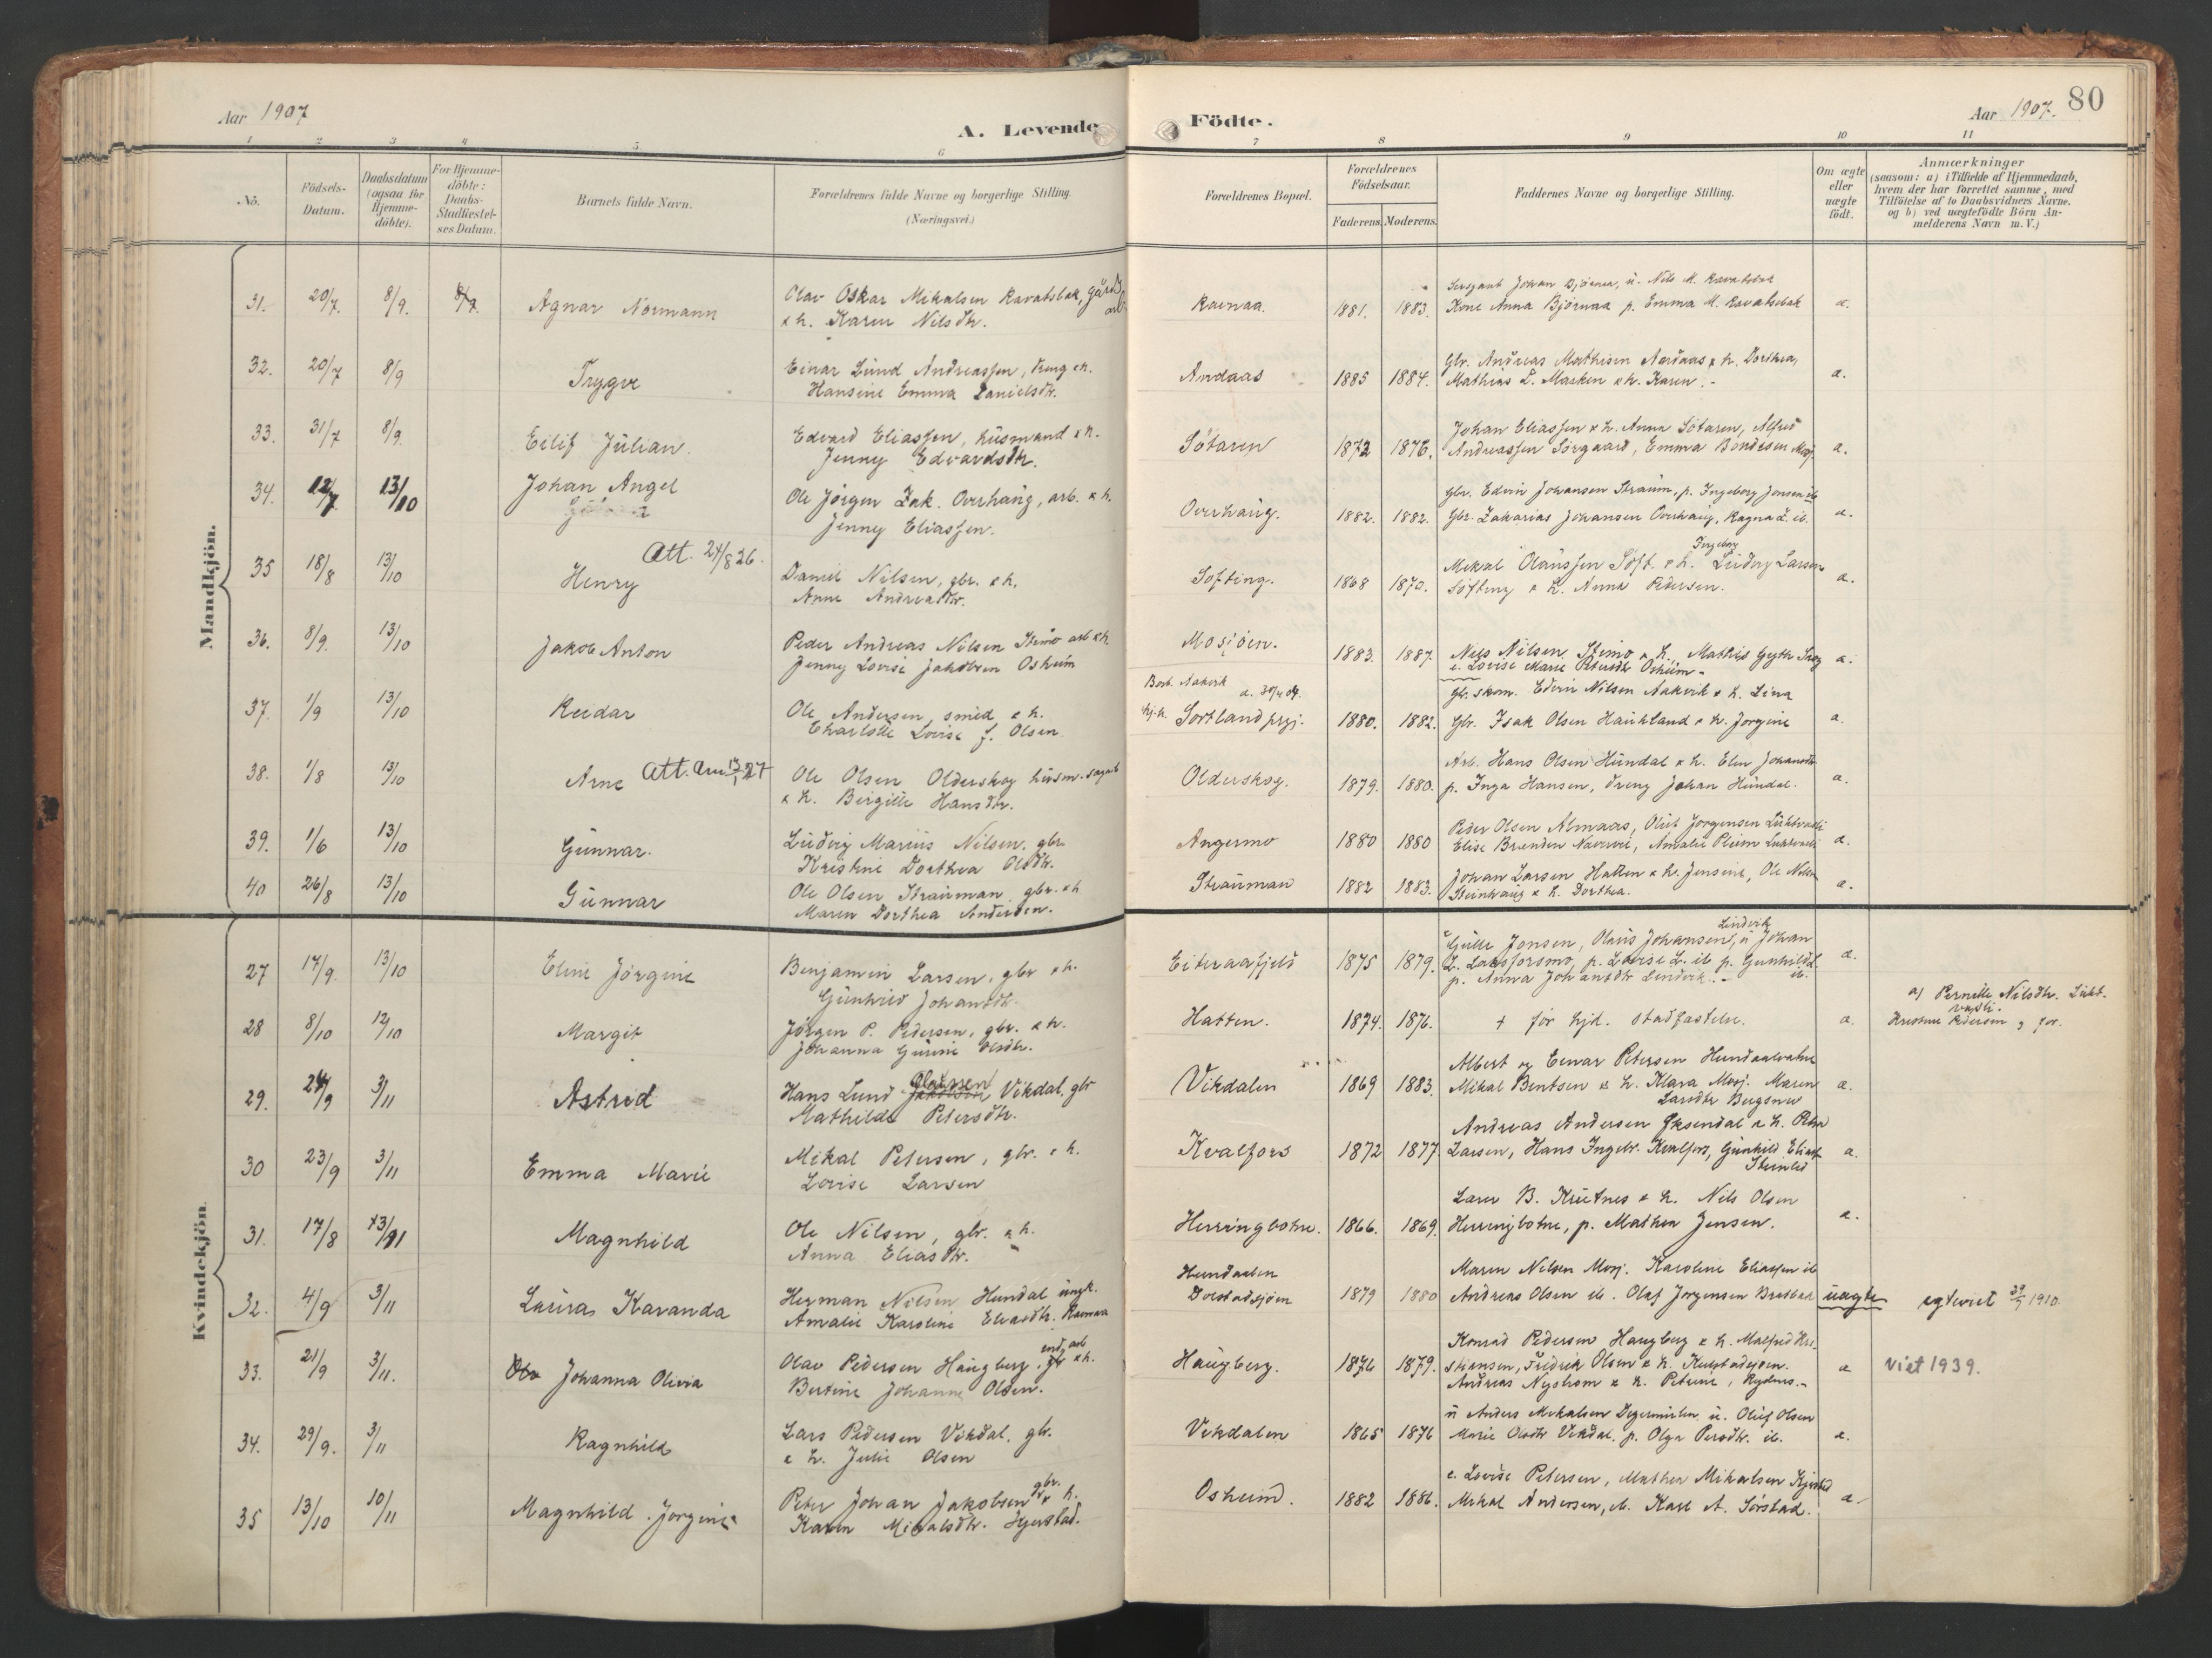 Aar 1907
A. Levende
Födte.
Aar 1907. 80
1 2 3 4 5. 6
7 8 9 10 11
Nö.
Födsels-Datum.
Daabsdatum (ogsaa for Hjemme-döbte).
For Hjemme-döbte: Daabs-Stadfæstel-ses Datum.
Barnets fulde Navn.
Forældrenes fulde Navne og borgerlige Stilling. (Næringsvei.)
Forældrenes Bopæl.
Forældrenes Födselsaar.
Faderens. Moderens.
Faddernes Navne og borgerlige Stilling.
Om ægte eller uægte födt.
Anmærkninger
(saasom: a) i Tilfælde af Hjemmedaab,
hvem der har forrettet samme, med
Tilföielse af to Daabsvidners Navne.
og b) ved uægtefödte Börn An-
melderens Navn m. V.)
Mandkjön.
31. 20/7. 8/9. 8/9. Agnar Normann
Olav Oskar Mikalsen Ravatsbak, gård
arb
& h. Karen Nilsdtr.
Ravnaa. 1881. 1883.
Sergeant Johan Björnaa, u. Nils M. Ravatsbak
Kone Anna Björnaa p. Emma M. Ravatsbak
æ.
32. 20/7 8/9 Trygve
Einar Lund Andreassen, dreng & h.
Hansine Emma Danielsdtr.
Andaas 1885 1884.
Gbr. Andreas Mathisen Andaas & h. Dorthea,
Mathias L. Marken & h. Karen.-
æ.
33. 31/7 8/9. Eilif Julian.
Edvard Eliassen, husmand & h.
Jenny Edvardsdtr.
Sötaren 1872 1876.
Johan Eliassen & h. Anna Sötaren, Alfred
Andreassen Sörgaard, Emma Bondesen Mosj.
æ.
34. 12/7 13/10 Johan Angel
Ole Jörgen Zak. Overhaug, arb. & h.
Jenny Eliassen.
Overhaug. 1882. 1882.
Gbr. Edvin Johansen Straum, p. Ingeborg Jonsen ib
Gbr. Zakarias Johansen Overhaug, Ragna Z. ib.
æ.
35 18/8 13/10 Henry
Att. 24/8 26.
Daniel Nilsen, gbr. & h.
Anne Andreasdtr.
Söfting. 1868 1870.
Ingeborg
Mekal Olaussen Söft. & h. Ludvig Larsen
Söfting & h. Anna Pedersen.
æ.
36. 8/9. 13/10 Jakob Anton
Peder Andreas Nilsen Stimo arb & h.
Jenny Lovise Jakobsen Osheim
Mosjöen. 1883. 1887.
Nils Nilsen Stimo & h. Mathis Gyth
e. Lovise Marie Petersdtr Osheim-
æ.
37. 1/9 13/10 Reidar
Ole Andersen, smed & h.
Charlotte Lovise f. Olsen
Bort. Aakvik
Sortland prgj. 1880. 1882.
Gbr. skom. Edvin Nilsen Aakvik & h. Lina
Gbr. Isak Olsen Haukland & h. Jorgine
æ.
38. 1/8 13/10 Arne
Att. 27
Ole Olsen Olderskog husm. sagarb
& h. Birgitte Hansdtr.
Olderskog. 1879. 1880.
Arb. Hans Olsen Hundal & h. Elen Johansdtr
p. Inga Hansen, dreng Johan Hundal.
æ.
39. 1/6 13/10 Gunnar.
Ludvig Marius Nilsen, gbr.
Kristine Dorthea Olsdtr.
Angermo 1880 1880
Peder Olsen Almaas, Oluf Jorgensen
Elise Brænden, Amalie
æ.
40 26/8 13/10 Gunnar
Ole Olsen Strauman gbr. & h
Maren Dorthea Andersen.
Strauman 1882 1883.
Johan Larsen Hatten & h. Jensine, Ole Nilsen
Steinhaug & h. Dorthea.
æ.
Kvindekjön.
27 17/9. 13/10 Eline Jörgine
Benjamin Larsen, gbr & h.
Gunhild Johansdtr.
Eiteraafjeld 1875 1879.
Lindvik
Gulle Jonsen, Olaus Johansen, u Johan
L. Laksforsmo, p. Lovise L. ib p. Gunhild L.
p. Anna Johansdtr Lindvik.- ib.
æ.
28 8/10 12/10 Margit
Jörgen P. Pedersen, gbr. & h.
Johanna Gurine Olsdtr.
Hatten. 1874. 1876.
+ för hjd. stadfæstelse.
æ.
a) Pernille Nilsdtr.
Kristine Pedersen
29. 24/9 3/11 Astrid
Olaussen
Hans Lund Jakobsen Vikdal, gbr
Mathilde Petersdtr.
Vikdalen 1869 1883.
Albert og Einar Petersen Hundaalvatne
Mikal Bentsen & h. Klara Mosj. Maren
Larsdtr Bergsnev
æ.
30 23/9 3/11 Emma Marie
Mikal Petersen, gbr. & h.
Lovise Larsen
Kvalfors 1872 1877.
Andreas Andersen Öksendal & h. Petra
Larsen, Hans Ingebr. Kvalfors, Gunhild Eliasd
æ.
31. 17/8 13/11 Magnhild
Ole Nilsen, gbr. & h.
Anna Eliasdtr.
Herringbotn. 1866. 1869.
Lars B. Krutnes & h. Nils Olsen
Herringbotne, p. Mathea Jensen.
æ.
32. 4/9 3/11 Laura Karanda
Herman Nilsen Hundal ungk.
Amalie Karoline Eliasdtr. Ravnaa
Hundaalen
Dolstadsjöen 1879 1880
Maren Nilsen Mosj. Karoline Eliassen ib
Andreas Olsen ib. Olaf Jorgensen
uægte
egteviet 1910.
33. 21/9 3/11. Johanna Olivia
Olav Pedersen Haugberg, gbr & h.
Bertine Johanne Olsen.
Haugberg. 1876 1879.
Konrad Pedersen Haugberg & h. Malfred Kri-
stiansen, Fredrik Olsen & h. Kulstadsjöen.
Andreas Nyström & h. Petrine, Rydens.-
æ
Viet 1939.
34. 29/9. 3/11 Ragnhild
Lars Pedersen Vikdal, gbr.
& h. Julie Olsen
Vikdalen 1865 1876
u Anders Mikalsen u. Oluf Olsen
Marie Olsdtr Vikdal, p. Olga Persdtr. ib.
æ.
35 13/10 10/11 Magnhild Jorgine
gbr.
Peter Johan Jakobsen & h.
Karen Mikalsdtr. Hjerstad.
Osheim. 1882 1886.
e. Lovise Petersen, Mathea Mikalsen
Mikal Andersen, ib. Karl A. Sörstad.
æ